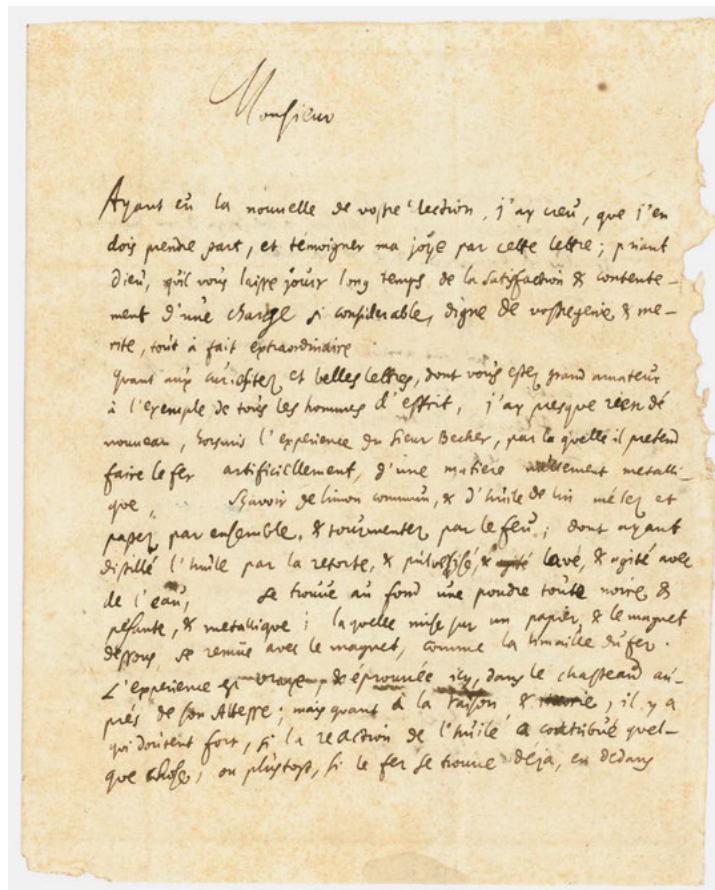 Monsieur
Ayant eu la nouvelle de vostre election, j'ay creu, que j'en
dois prendre part, et témoigner ma joÿe par cette lettre; priant
Dieu, qu'il vous laisse jouir long temps de la satisfaction & contente-
ment d'une charge si considerable, digne de vostre genie & me-
rite, tout à fait extraordinaire.
Quant aux curiositez et belles lettres, dont vous estez grand amateur
à l'exemple de tous les hommes d'esprit, j'ay presque rien de
nouveau, horsmis l'experience du Sieur Becher, par la quelle il pretend
faire le fer artificiellement, d'une matiere nullement metalli-
que, sçavoir de limon commun, & d'huile de lin mélez et
papez par ensemble, & tourmentez par le feu; dont ayant
distillé l'huile par la retorte, & pulverisé, & agité lavé, & agité avec
de l'eau, se trouve au fond une poudre toute noire &
pesante, & metallique; la quelle mise sur un papier, & le magnet
dessous, se remüe avec le magnet, comme la limaille du fer.
L'experience est vraye, & éprouvée icy, dans le chasteau au-
prés de son Altesse; mais quant à la raison & , il y a
qui doutent fort, si la reaction de l'huile a contribué quel-
que chose, ou plustost, si le fer se trouve deja, en dedans